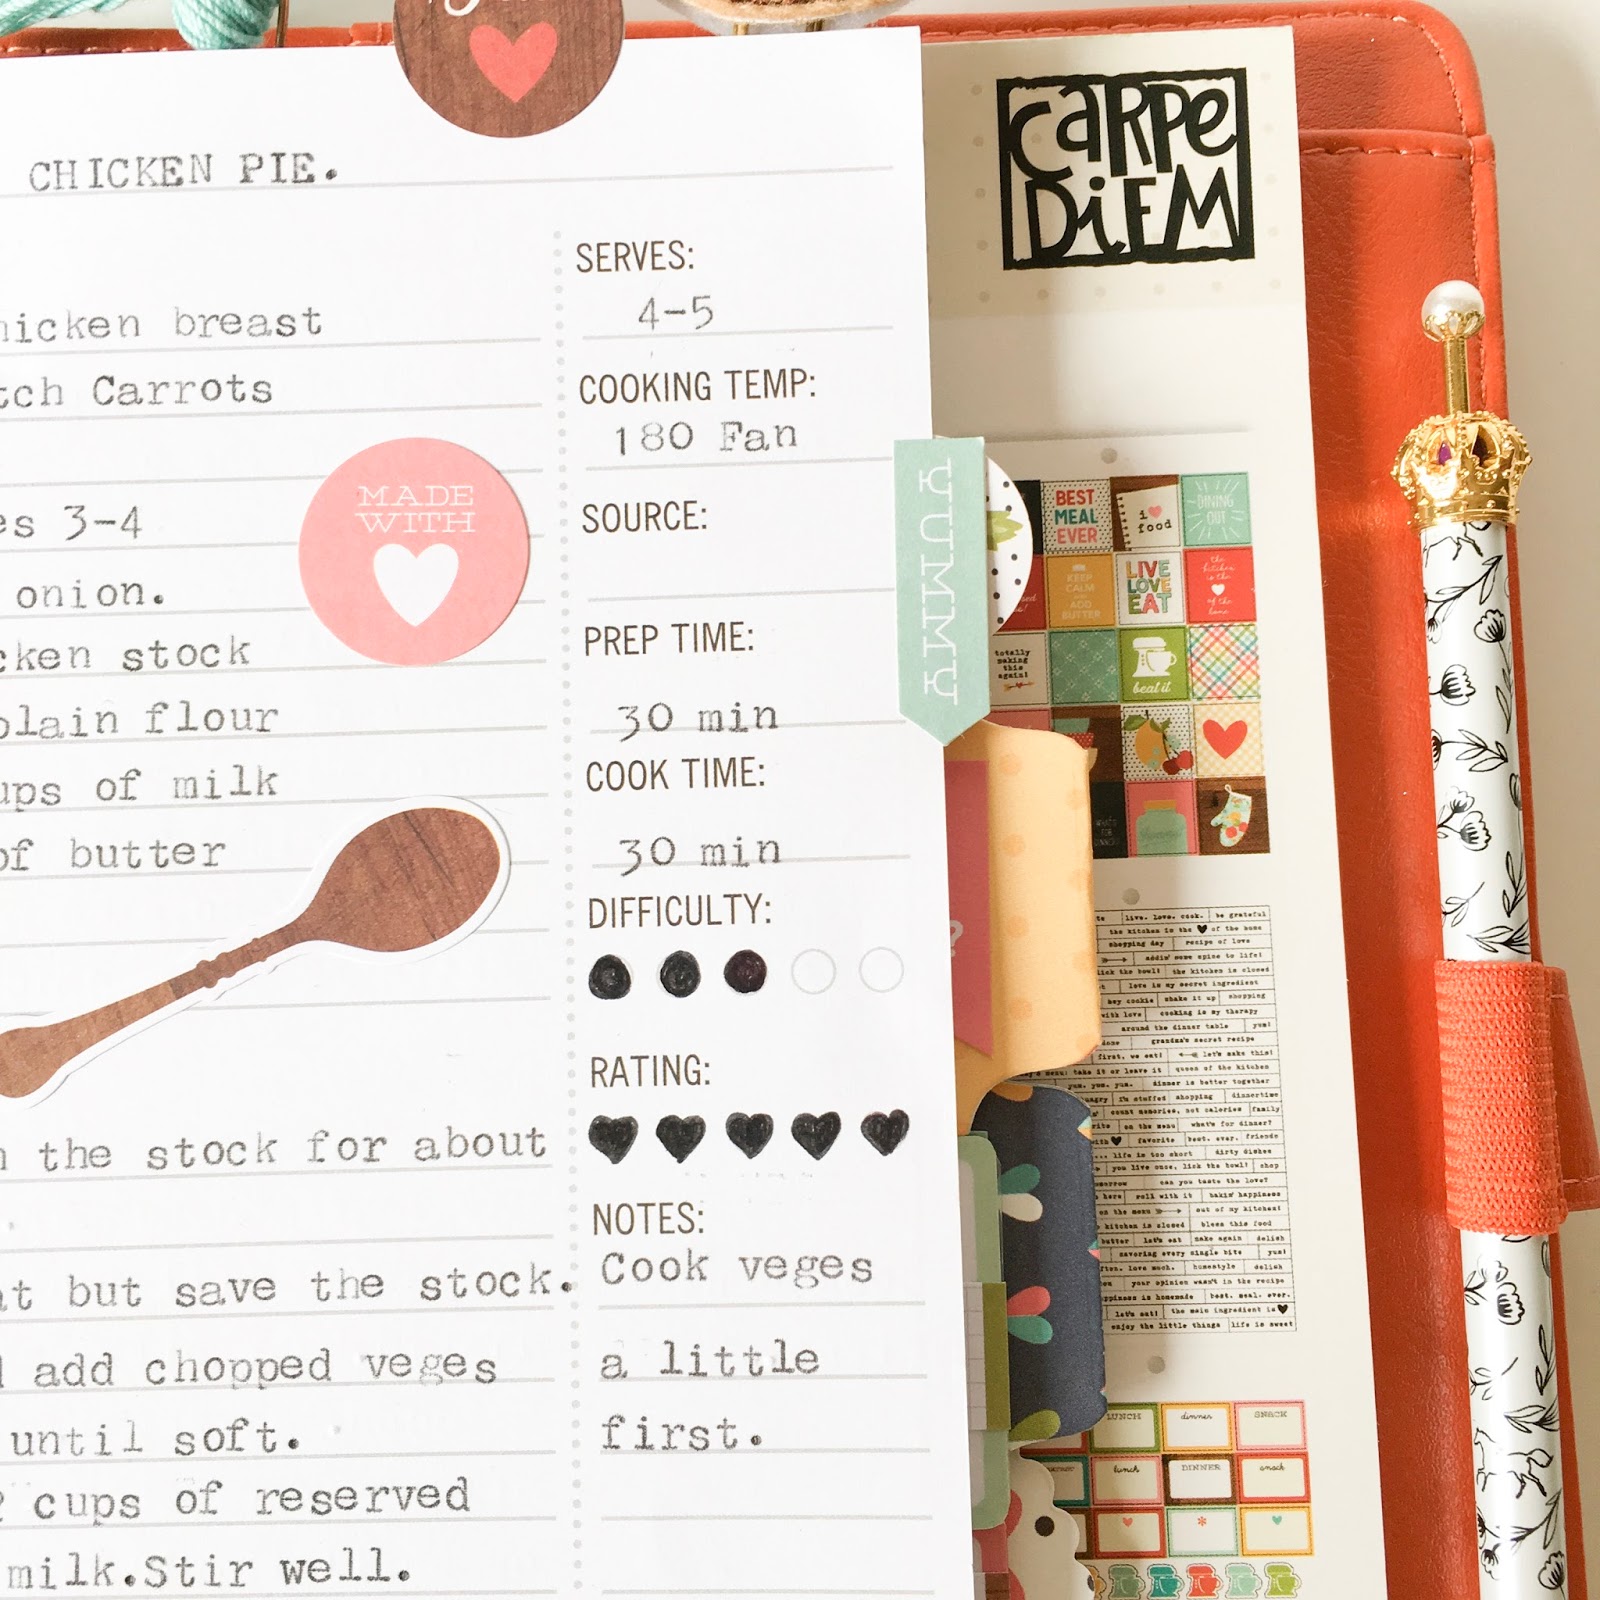 CHICKEN PIE.
breast
Carrots
3-4
onion.
stock
plain flour
of milk
of butter
MADE
WITH
the stock for about
but save the stock.
add chopped veges
until soft.
cups of reserved
milk.Stir well.
SERVES:
4-5
COOKING TEMP:
180 Fan
SOURCE:
PREP TIME:
30 min
COOK TIME:
30 min
DIFFICULTY:
RATING:
NOTES:
Cook veges
a little
first.
YUMMY
?
CARPE
DIEM
BEST
MEAL
EVER
i
food
DINING
OUT
KEEP
CALM
AND
ADD
BUTTER
LIVE
LOVE
EAT
the
kitchen
is the
of the
home
totally
making
this
again!
beat it
live. love. cook. be grateful
the kitchen is the of the home
shopping day recipe of love
addin' some spice to life!
lick the bowl! the kitchen is closed
love is my secret ingredient
hey cookie shake it up shopping
with love cooking is my therapy
around the dinner table yum!
done grandma's secret recipe
first, we eat! let's make this!
menu: take it or leave it queen of the kitchen
yum. yum. yum. dinner is better together
hungry I'm stuffed shopping dinnertime
count memories, not calories family
on the menu what's for dinner?
favorite best. ever. friends
life is too short dirty dishes
you live once, lick the bowl! chop
can you taste the love?
here roll with it bakin' happiness
on the menu out of my kitchen!
kitchen is closed bless this food
butter let's eat make again delish
savoring every single bite yum!
often. love much. homestyle delish
your opinion wasn't in the recipe
happiness is homemade best. meal. ever.
let's eat! the main ingredient is
enjoy the little things life is sweet
LUNCH dinner SNACK
lunch DINNER snack